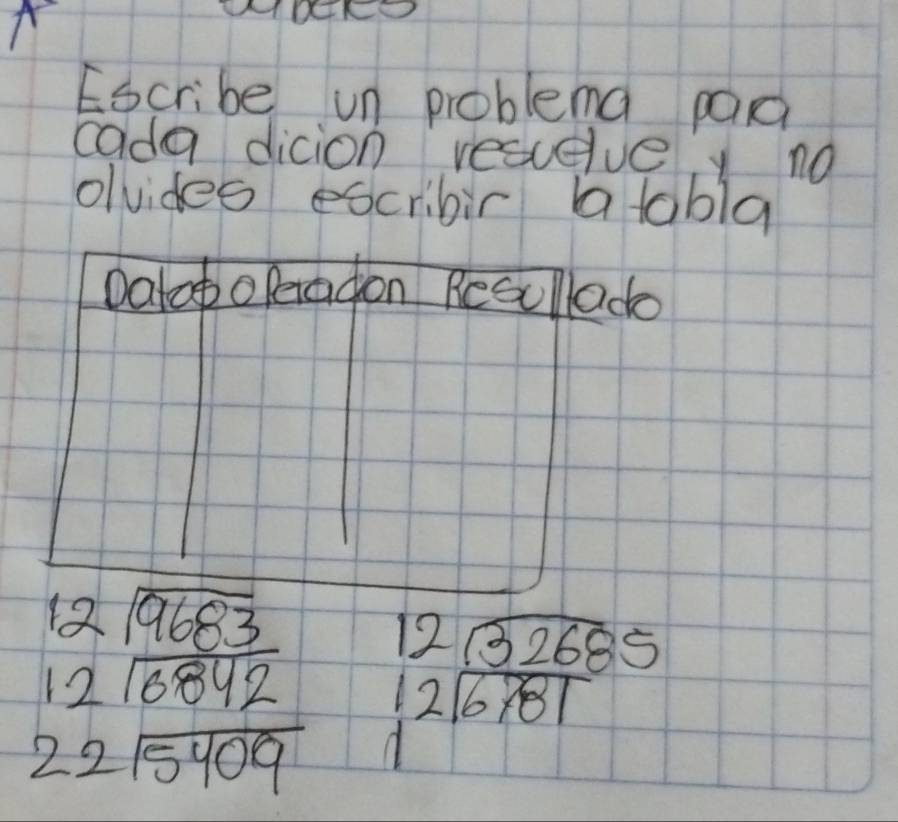 Escribe un problema para
cada dicion resuelve y no
olvides escribir la tabla
Datos operacion Resultado
12 9683
12 32685
12 6842
12 6781
22 5409